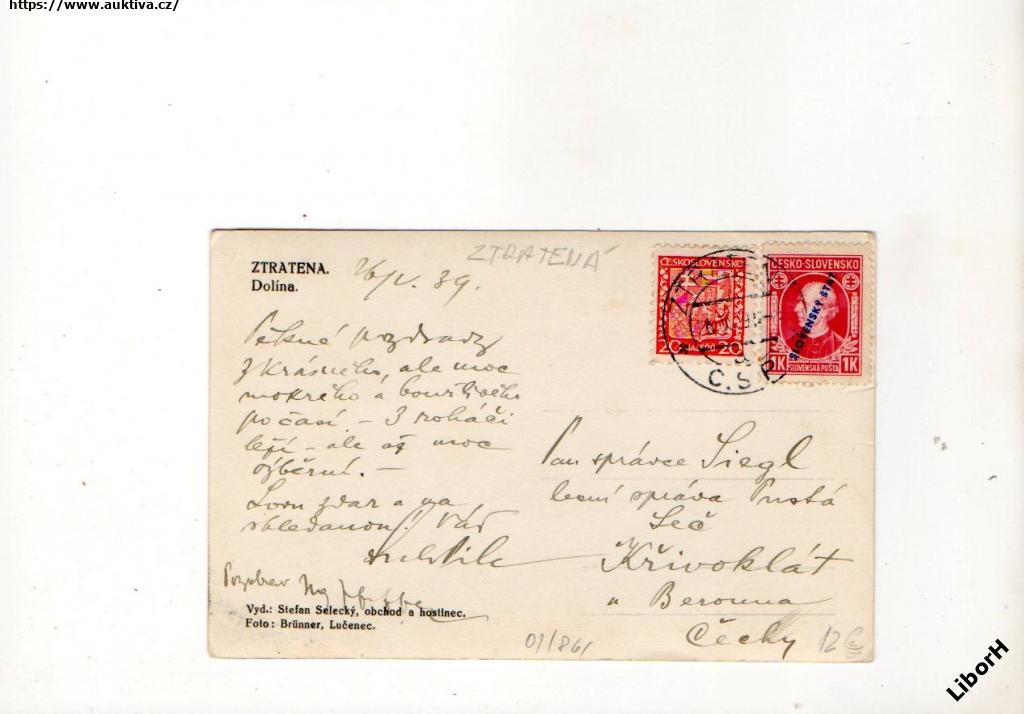 https://www.auktiva.cz/
ZTRATENÁ
ZTRATENA.
Dolína.
26/V. 39.
ČESKOSLOVENSKO
20 20
ČESKO-SLOVENSKO
SLOVENSKÝ ŠTÁT
1K 1K
SLOVENSKÁ POŠTA
Č.S.P.
Pěkné pozdravy
z krásného, ale moc
mokrého a bouřlivého
počasí – 3 roháči
leží – ale až moc
výběrní. –
Lovu zdar a na
shledanou! Váš
Pozdrav Ing
Vyd.: Stefan Selecký, obchod a hostinec.
Foto: Brünner, Lučenec.
Pan správce Siegl
lesní správa Pustá
Seč
Křivoklát
u Berouna
Čechy
01/861
12
LiborH